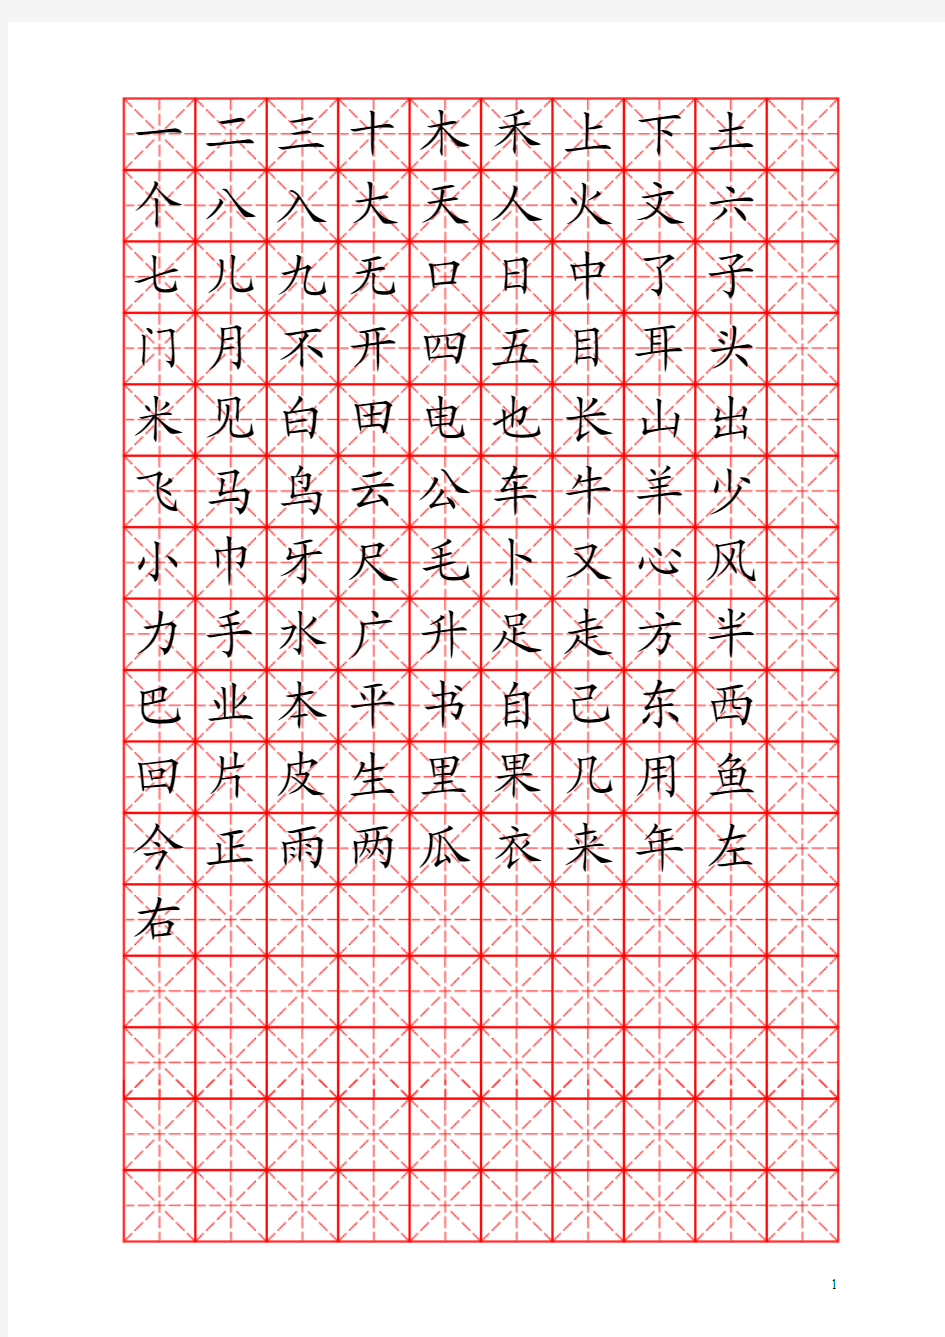 一二三十木禾上下土
个八入大天人火文六
七儿九无口日中了子
门月不开四五目耳头
米见白田电也长山出
飞马鸟云公车牛羊少
小巾牙尺毛卜又心风
力手水广升足走方半
巴业本平书自己东西
回片皮生里果几用鱼
今正雨两瓜衣来年左
右
1